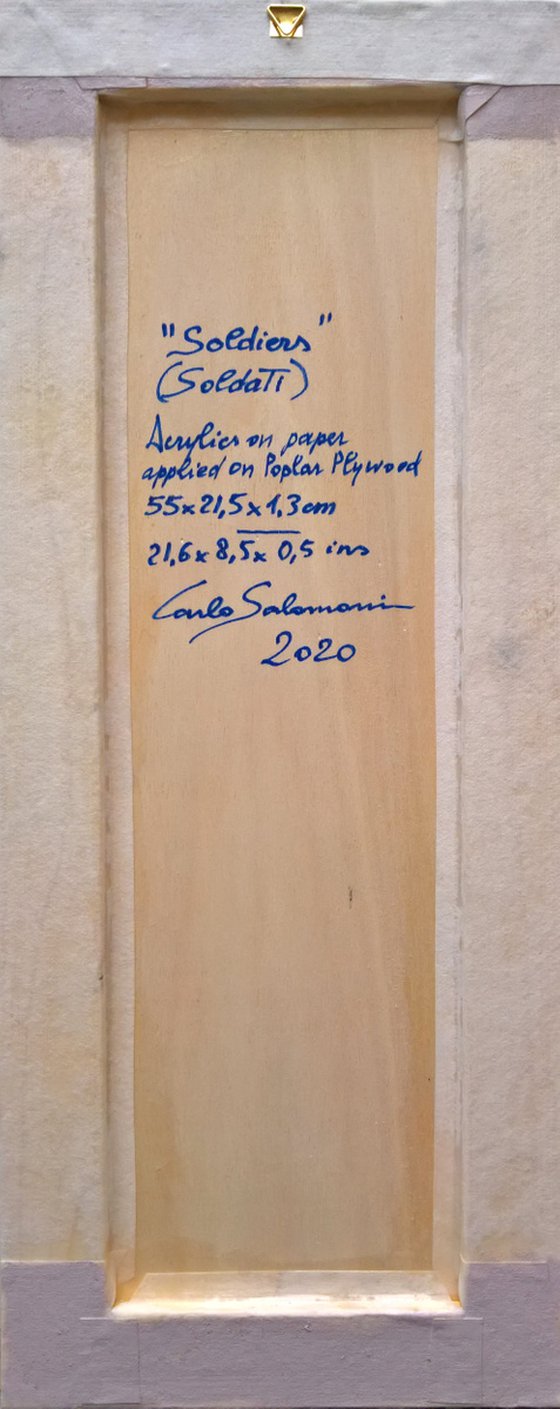 "Soldiers"
(Soldati)
Acrylics on paper
applied on Poplar Plywood
55x21,5x1,3cm
21,6x8,5x0,5 ins
Carlo Salomoni
2020